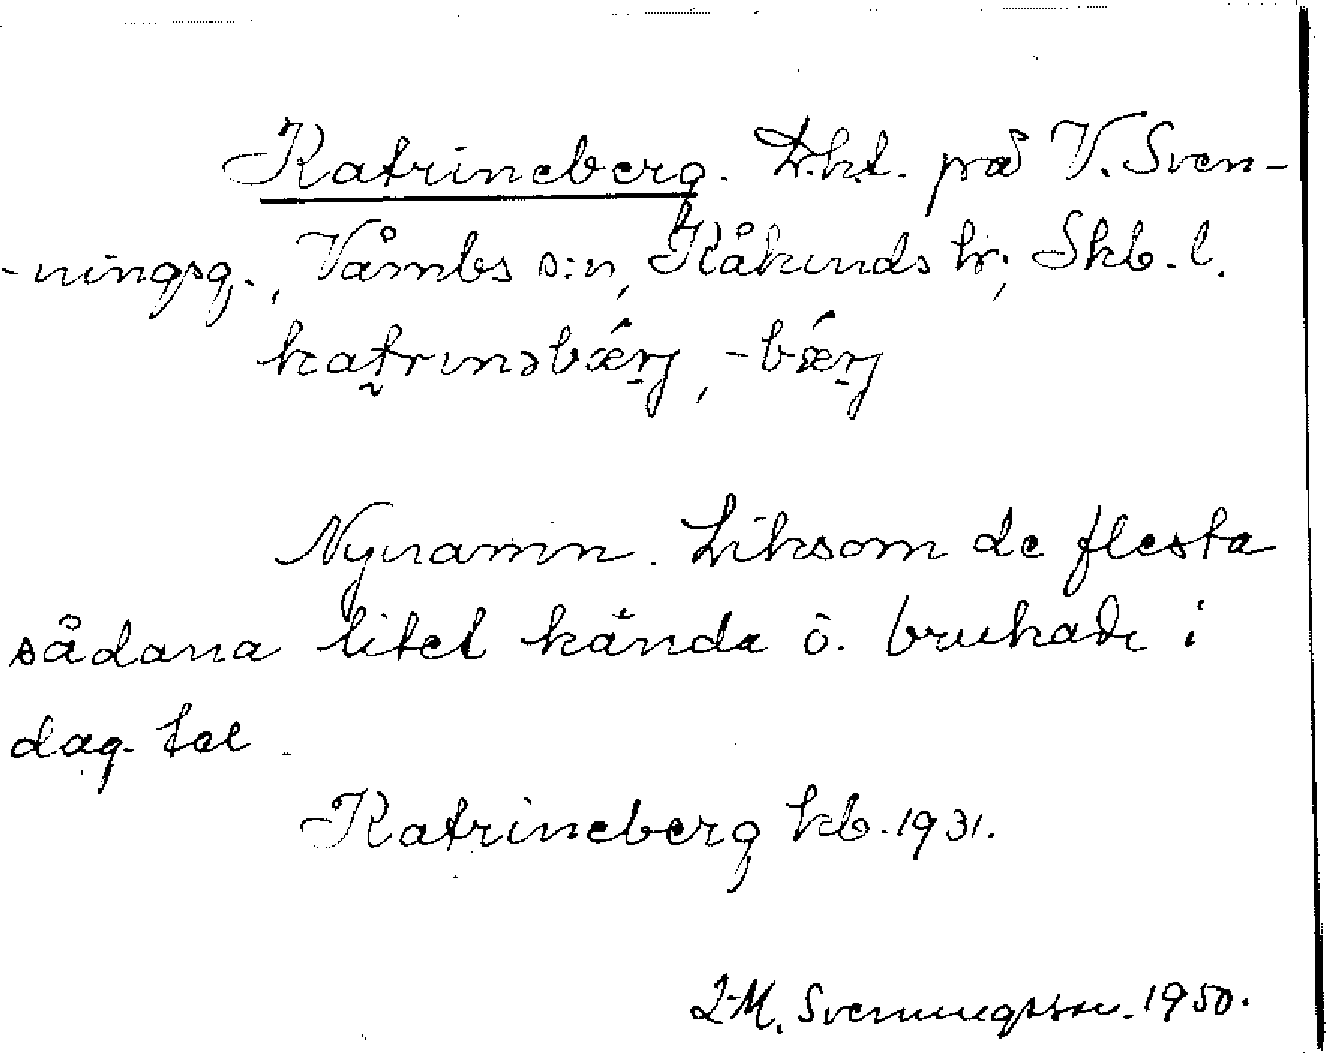 Katrineberg. Lht. på V. Sven-
-ningsg., Våmbs s:n, Kåkinds hr, Skb. l.
katrınəbærj, -bærj
Nynamn. Liksom de flesta
sådana litet kända o. brukade i
dag. tal.
Katrineberg kb. 1931.
L-M. Svenningsson. 1950.